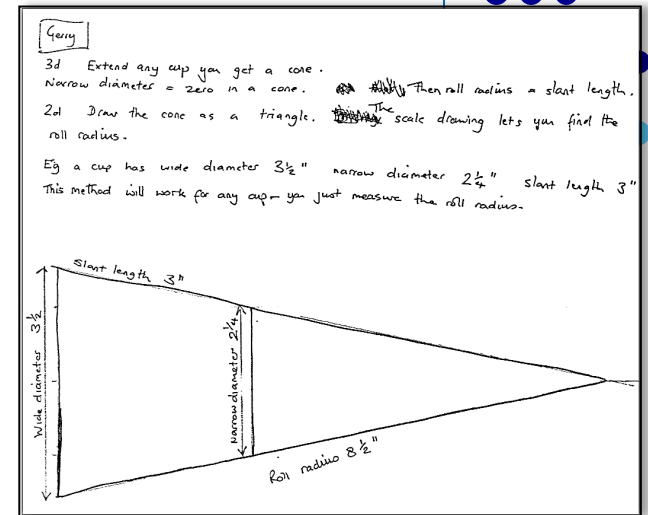 Gerry
3d Extend any cup you get a cone.
Narrow diameter = zero in a cone. Then roll radius = slant length.
2d Draw the cone as a triangle. The scale drawing lets you find the
roll radius.
Eg a cup has wide diameter 3½" narrow diameter 2¼" slant length 3"
This method will work for any cup - you just measure the roll radius.
Slant length 3"
Wide diameter 3½
Narrow diameter 2¼
Roll radius 8½"